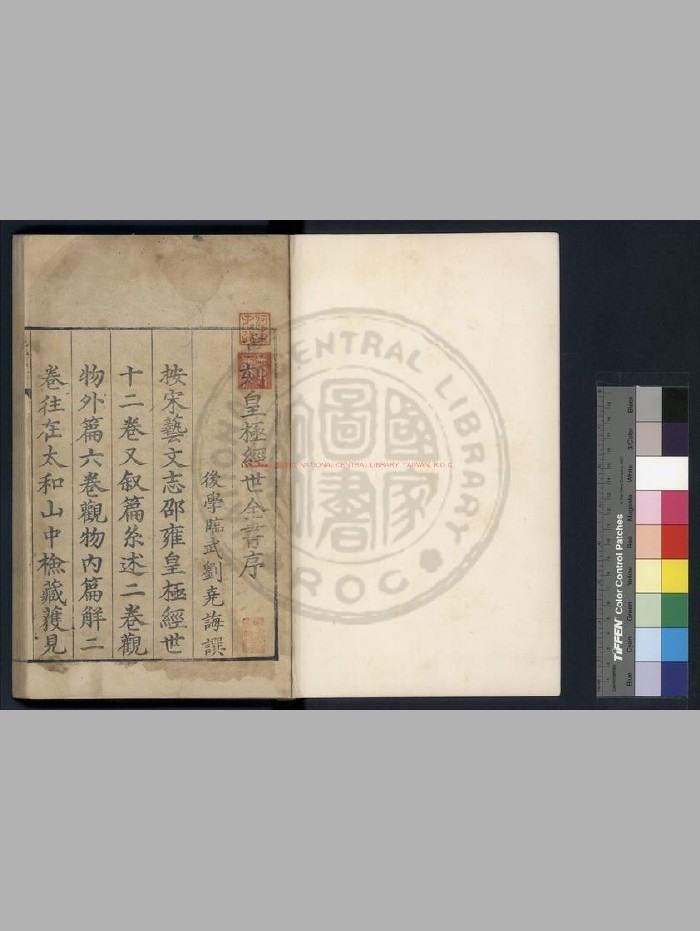 刻皇極經世全書序
後學臨武劉堯誨譔
按宋藝文志邵雍皇極經世
十二卷又叙篇系述二卷觀
物外篇六卷觀物內篇解二
卷往在太和山中檢藏獲見
NATIONAL CENTRAL LIBRARY, TAIWAN, R.O.C.
CENTRAL LIBRARY
ROC
國家圖書
TIFFEN Color Control Patches
Blue
Cyan
Green
Yellow
Red
Magenta
White
3/Color
Black